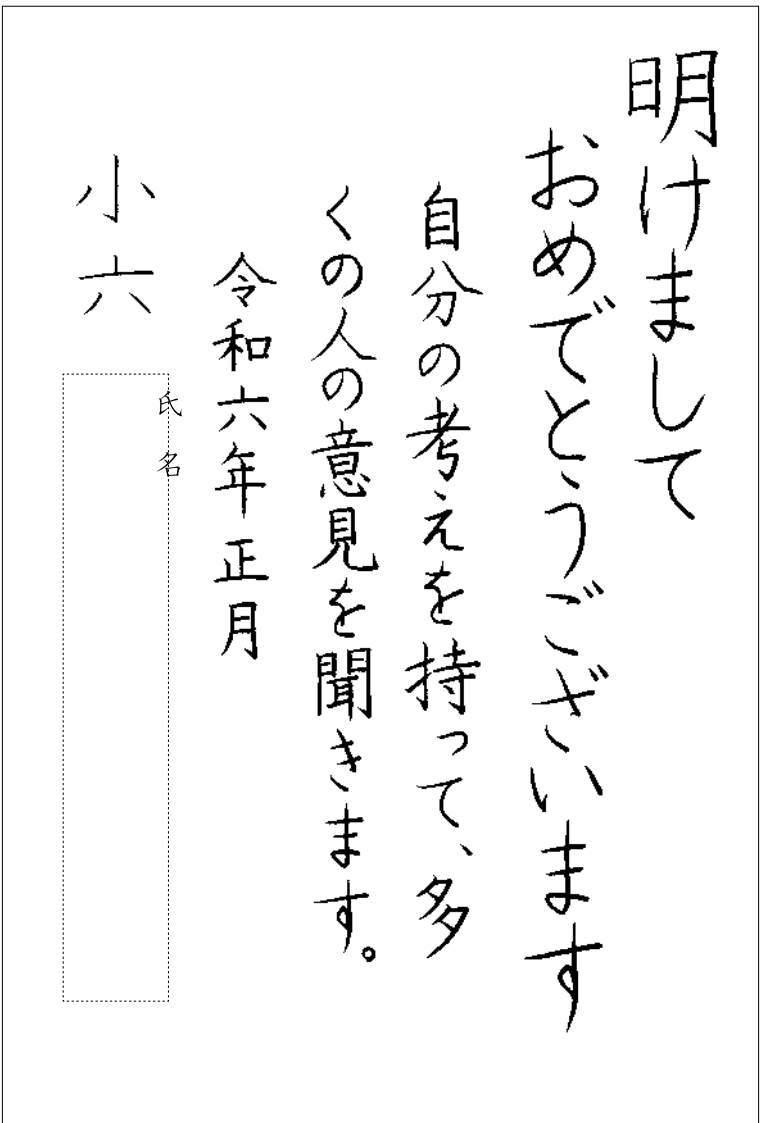 明けまして
おめでとうございます
自分の考えを持って、多
くの人の意見を聞きます。
令和六年正月
小六
氏名